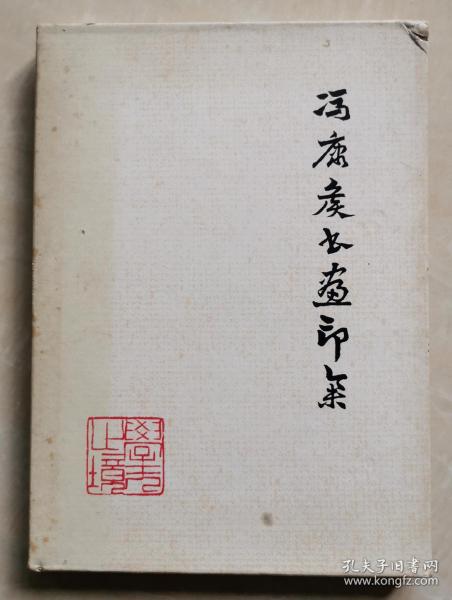 冯康侯书画印集
學無止境
孔夫子旧书网
www.kongfz.com